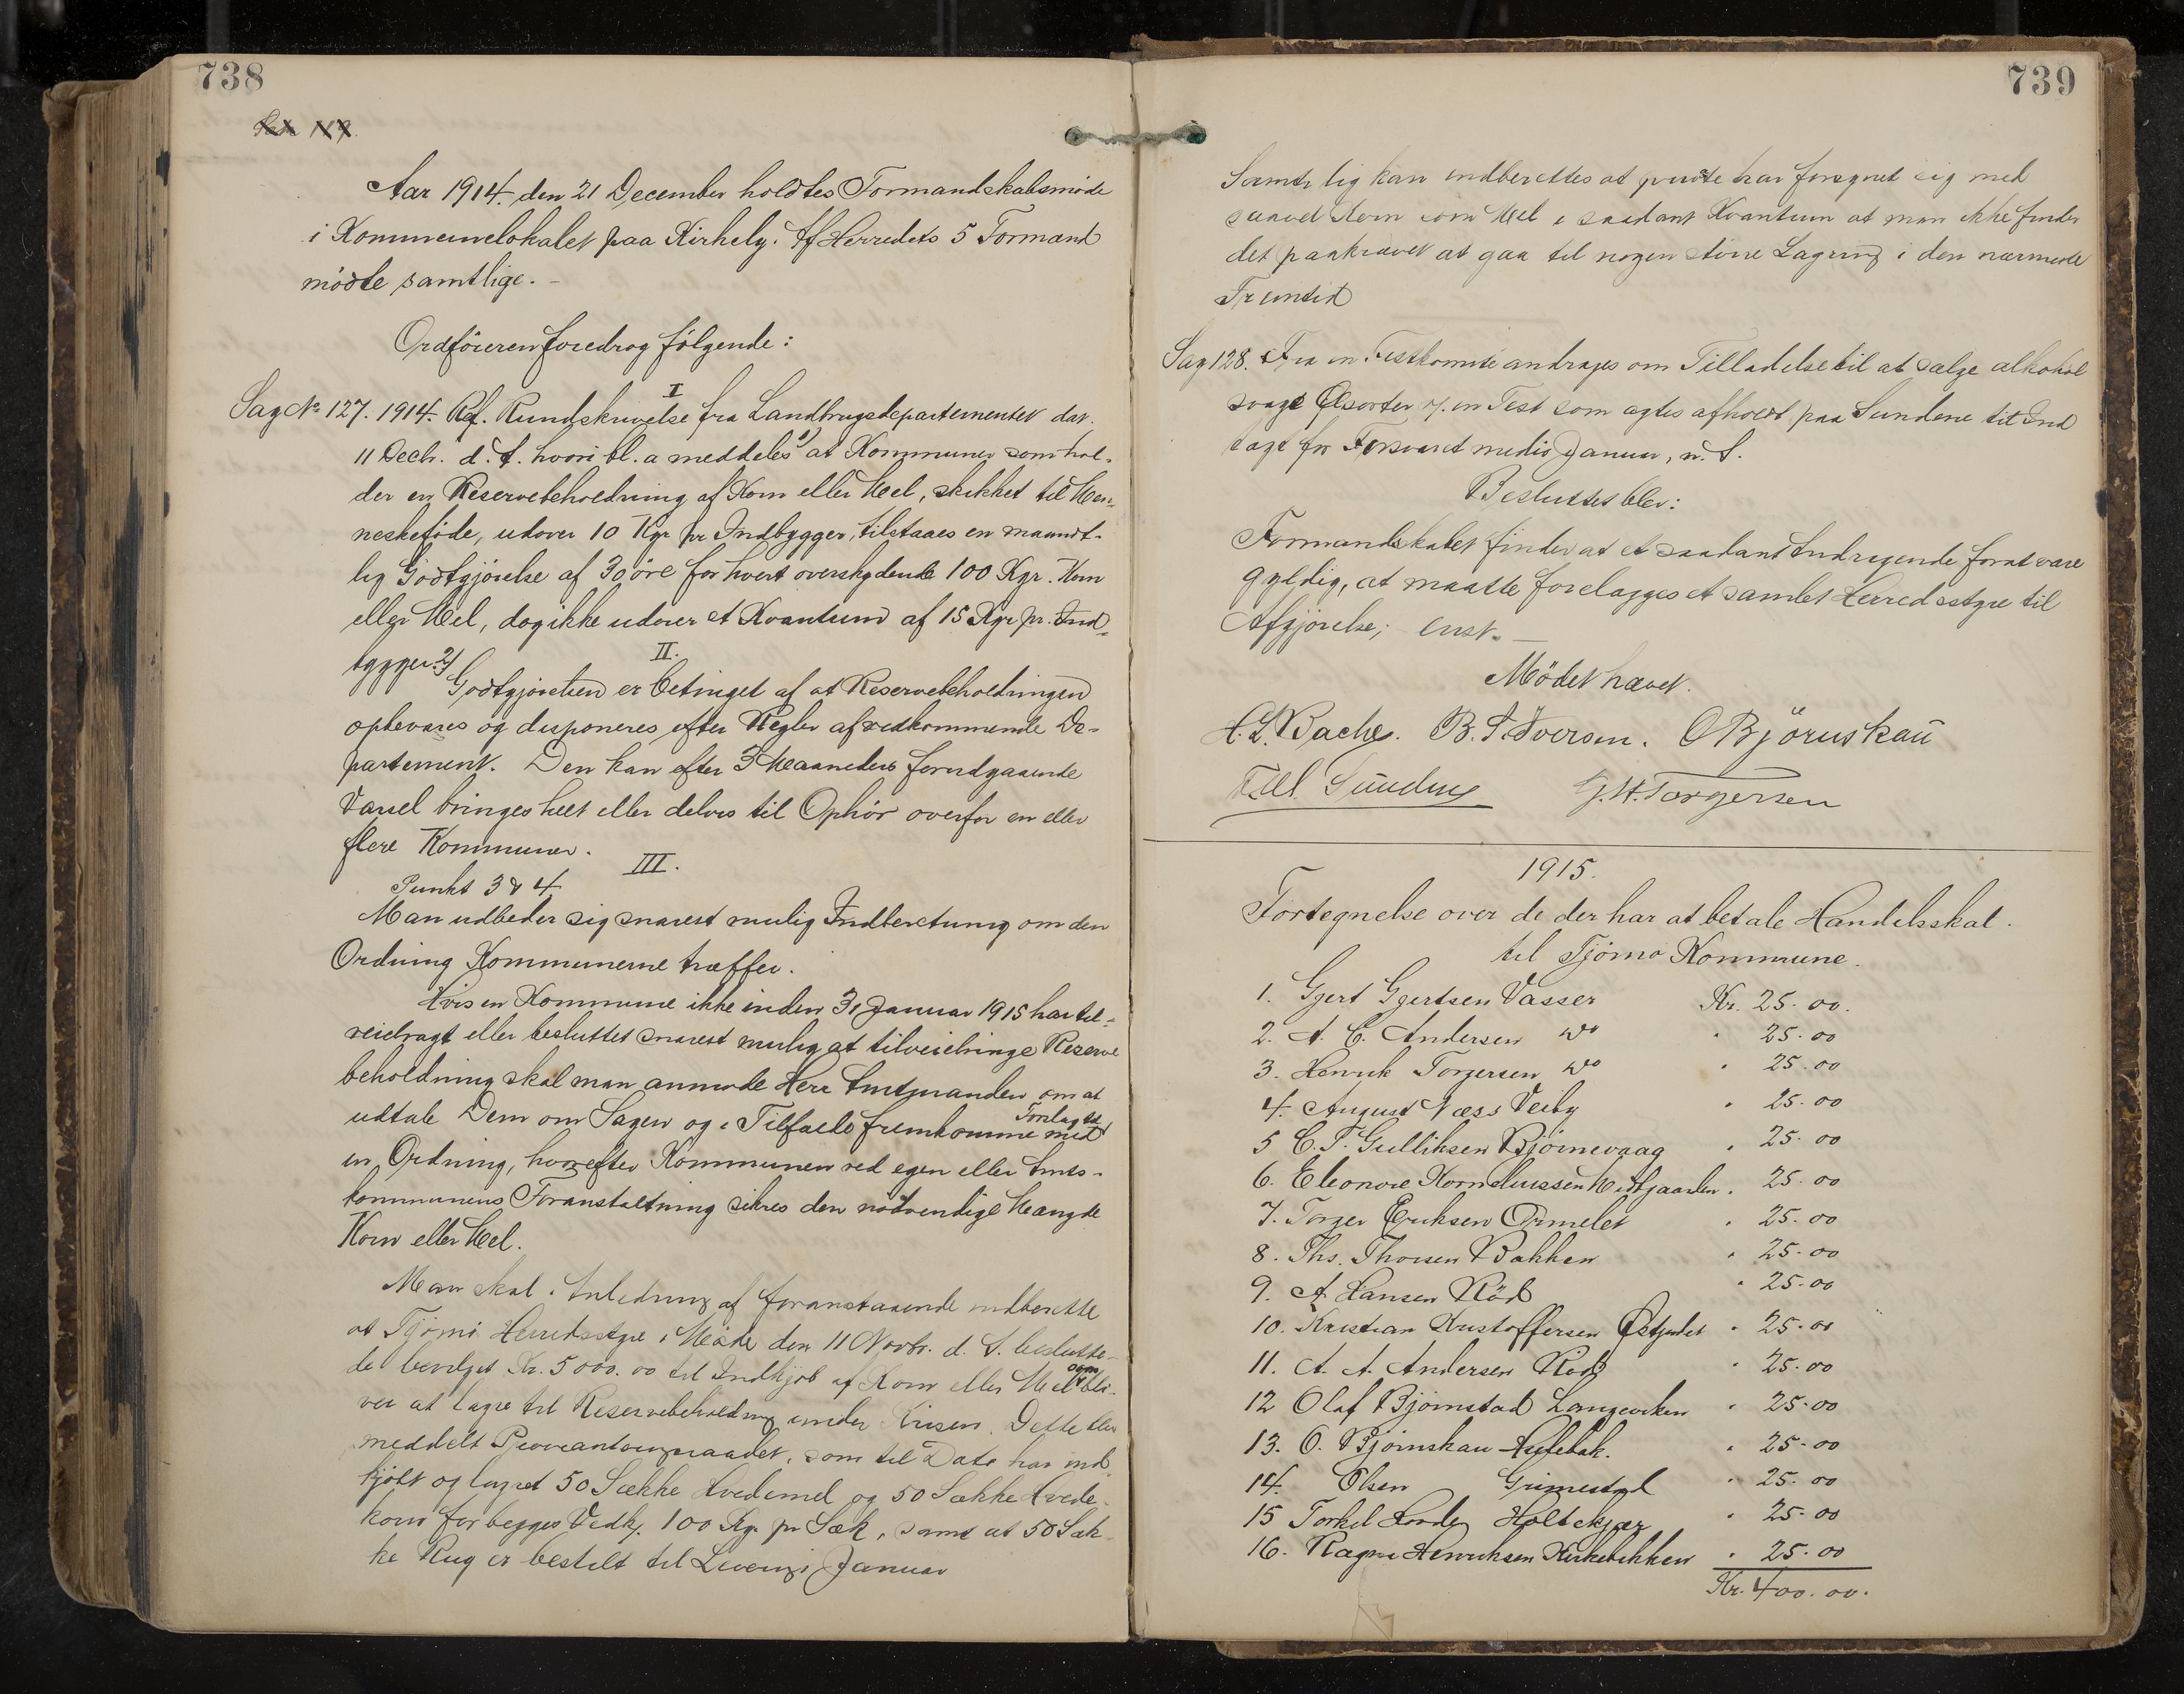 738
Aar 1914 den 21 December holdtes Formandskabsmöde
i Kommunelokalet paa Kirkely. Af Herredets 5 Formænd
mödte samtlige. –
Ordföreren foredrog følgende:
I
Sag No 127. 1914. Ref. Rundskrivelse fra Landbrugsdepartementet dat.
11 Decbr. d. A. hvori bl. a meddeles 1) at Kommuner som hol-
der en Reservebeholdning af Korn eller Mel, skikket til Men-
neskeföde, udover 10 Kgr pr Indbygger, tilstaaes en maanedt-
lig Godtgjörelse af 30 öre for hvert overskydende 100 Kgr. Korn
eller Mel, dog ikke udover et Kvantum af 15 Kgr pr. Ind-
bygger. 2)
II.
Godtgjörelsen er betinget af at Reservebeholdningen
opbevares og disponeres efter Regler af vedkommende De-
partement. Den kan efter 3 Maaneders forudgaaende
Varsel bringes helt eller delvis til Ophör overfor en eller
flere Kommuner.
III.
Punkt 3 & 4
Man udbeder sig snarest mulig Indberetning om den
Ordning Kommunerne træffer.
Hvis en Kommune ikke inden 31 Januar 1915 har til-
veiebragt eller besluttet snarest mulig at tilveiebringe Reserve
beholdning skal man anmode Herr Amtmanden om at
udtale Dem om Sagen og i Tilfælde fremkomme med Forslag til
en Ordning, hvorefter Kommunen ved egen eller Amts-
kommunens Foranstaltning sikres den nödvendige Mængde
Korn eller Mel.
Man skal i Anledning af foranstaaende indberette
at Tjömö Herredsstyre i Möde den 11 Novbr. d. A. beslutte-
de bevilget Kr. 5000.00 til Indkjöb af Korn eller Mel som bli-
ver at lagre til Reservebeholdning under Krisen. Dette blev
meddelt Provianteringsraadet, som til Dato har ind-
kjöbt og lagret 50 Sække Hvedemel og 50 Sække Hvede-
korn for begges Vedk. 100 Kg. pr Sæk, samt at 50 Sæk-
ke Rug er bestilt til Levering i Januar
739
Samtidig kan indberettes at private har forsynet sig med
saavel Korn som Mel i saadant Kvantum at man ikke finder
det paakrævet at gaa til nogen större Lagring i den nærmeste
Fremtid
Sag 128. Fra en Festkomite andrages om Tilladelse til at sælge alkohol
svage Ölsorter v. en Fest som agtes afholdt paa Sundene til Ind
tægt for Forsvaret medio Januar, n. A.
Besluttet blev:
Formandskabet finder at et saadant Andragende forat være
gyldig, at maatte forelægges et samlet Herredsstyre til
Afgjörelse; Enst. –
Mödet hævet.
H. L. Bache. B. A. Iversen. O Björnskaŭ
G. H. Torgersen
1915.
Fortegnelse over de der har at betale Handelsskat.
til Tjømø Kommune.
1. Gjert Gjertsen Vasser Kr. 25.00.
2. A. C. Andersen do " 25.00
3. Henrik Torgersen do " 25.00
4. August Næss Veiby " 25.00
5 C. F. Gulliksen Bjørnevaag " 25.00
6. Eleonore Korneliussen Midtgaarden " 25.00
7. Torger Eriksen Ormelet " 25.00
8. Ths. Thorsen Bakken " 25.00
9. A. Hansen Röd " 25.00
10. Kristian Kristoffersen Østjordet " 25.00
11. A. A. Andersen Röd " 25.00
12 Olaf Bjørnstad Langeviken " 25.00
13. O. Bjørnskau Hulebak. " 25.00
14. Olsen Grimestad " 25.00
15 Torkel Holtekjær " 25.00
16. Ragna Henriksen Kirkebakken " 25.00
Kr. 400.00.